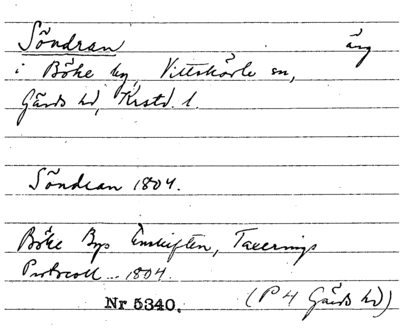 Söndran äng
i Böke by, Vittskövle sn,
Gärds hd, Krstd. l.
Söndran 1804.
Böke Bys Enskiften, Taxerings
Protocoll... 1804.
Nr 5340. (P 4 Gärds hd)